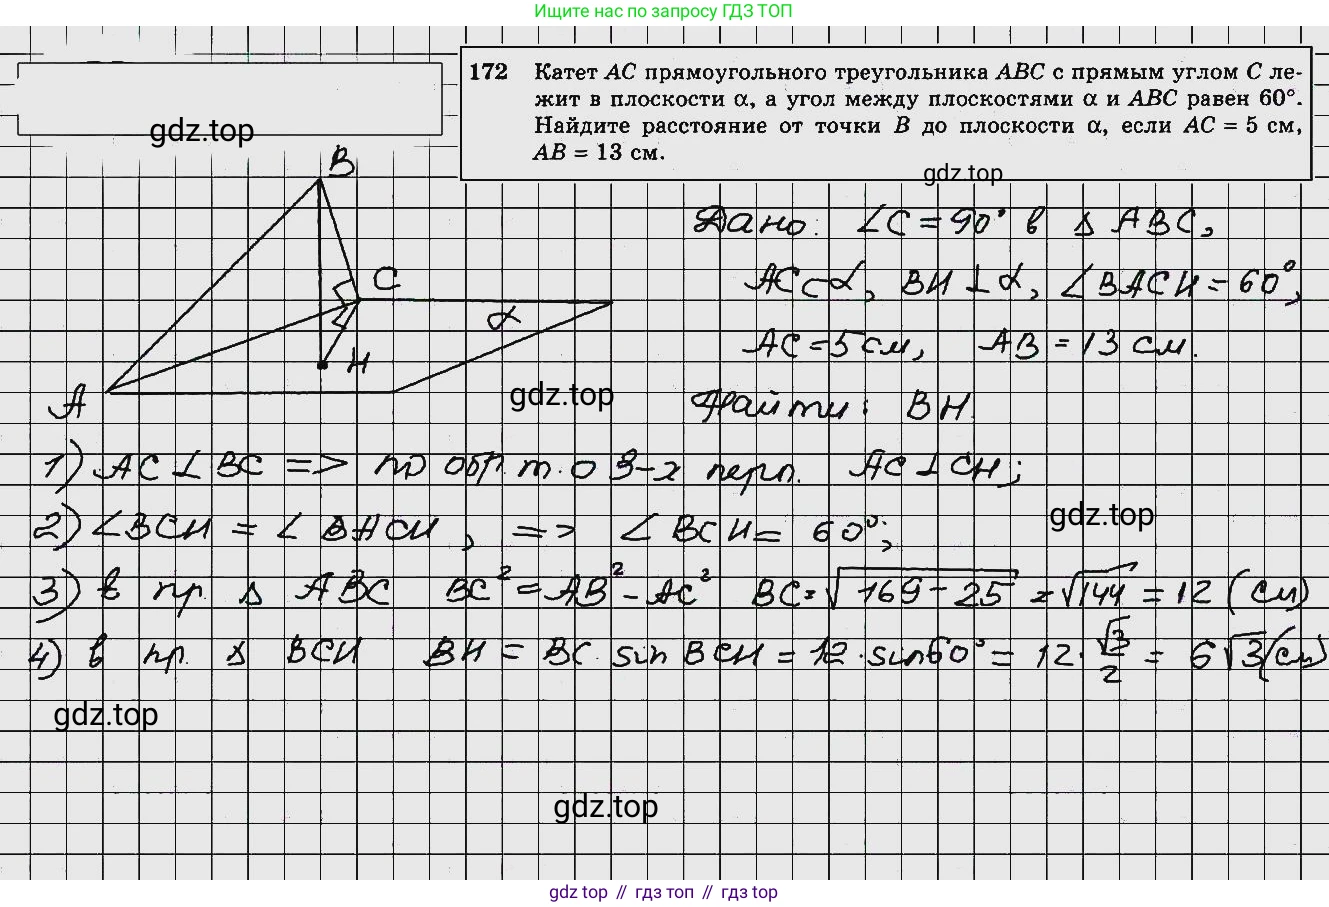 Ищите нас по запросу ГДЗ ТОП
172 Катет AC прямоугольного треугольника ABC с прямым углом C ле-
жит в плоскости α, а угол между плоскостями α и ABC равен 60°.
Найдите расстояние от точки B до плоскости α, если AC = 5 см,
AB = 13 см.
gdz.top
gdz.top
B
C
α
H
A
Дано: ∠C = 90° в Δ ABC,
AC ⊂ α, BH ⊥ α, ∠BACH = 60°,
AC = 5 см, AB = 13 см.
gdz.top
Найти: BH
1) AC ⊥ BC => по обр. т. о 3-х перп. AC ⊥ CH;
gdz.top
2) ∠BCH = ∠BACH, => ∠BCH = 60°;
3) в пр. Δ ABC BC² = AB² - AC² BC = √169 - 25 = √144 = 12 (см)
4) в пр. Δ BCH BH = BC · sin BCH = 12 · sin60° = 12 · √3/2 = 6√3 (см)
gdz.top
gdz.top
gdz top // гдз топ // gdz top